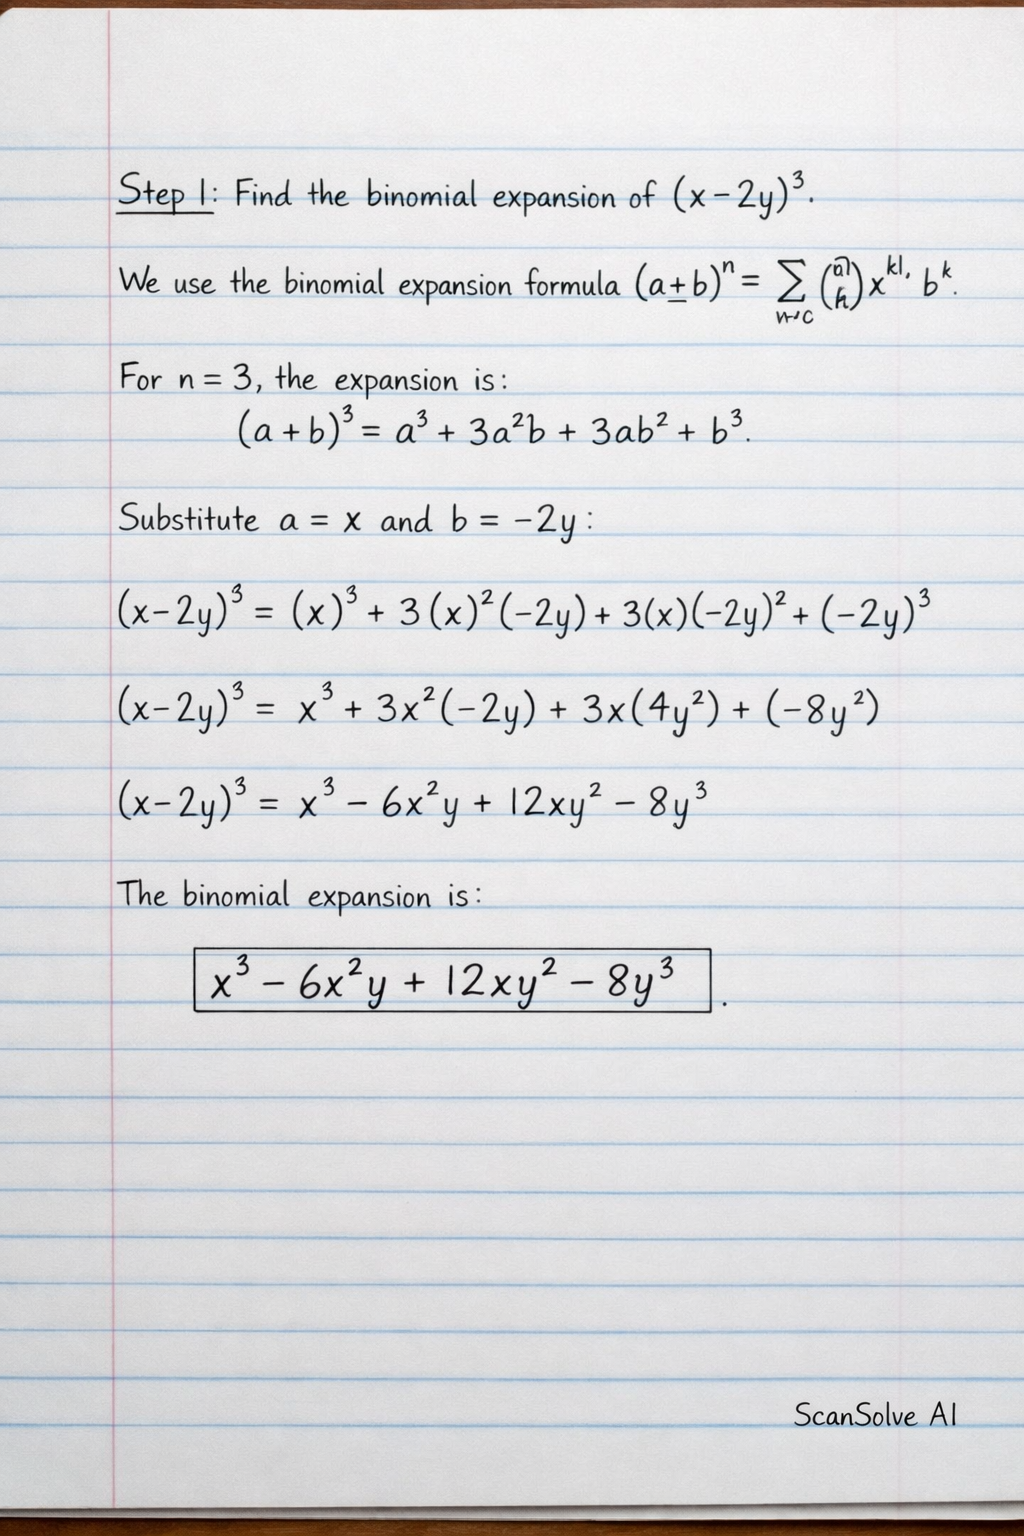 Step 1: Find the binomial expansion of (x − 2y)³.
We use the binomial expansion formula (a ± b)ⁿ = ∑ x b^k.
For n = 3, the expansion is:
(a + b)³ = a³ + 3a²b + 3ab² + b³.
Substitute a = x and b = −2y:
(x−2y)³ = (x)³ + 3(x)²(−2y) + 3(x)(−2y)² + (−2y)³
(x−2y)³ = x³ + 3x²(−2y) + 3x(4y²) + (−8y²)
(x−2y)³ = x³ − 6x²y + 12xy² − 8y³
The binomial expansion is:
x³ − 6x²y + 12xy² − 8y³.
ScanSolve AI